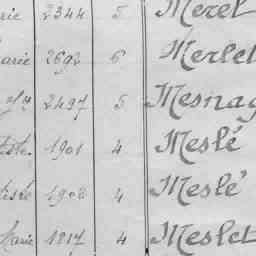 rie 2344 5 Merel
arie 2692 6 Merlet
2497 5 Mesnag
iste 1901 4 Meslé
tiste 1908 4 Meslé
Marie 1817 4 Meslet